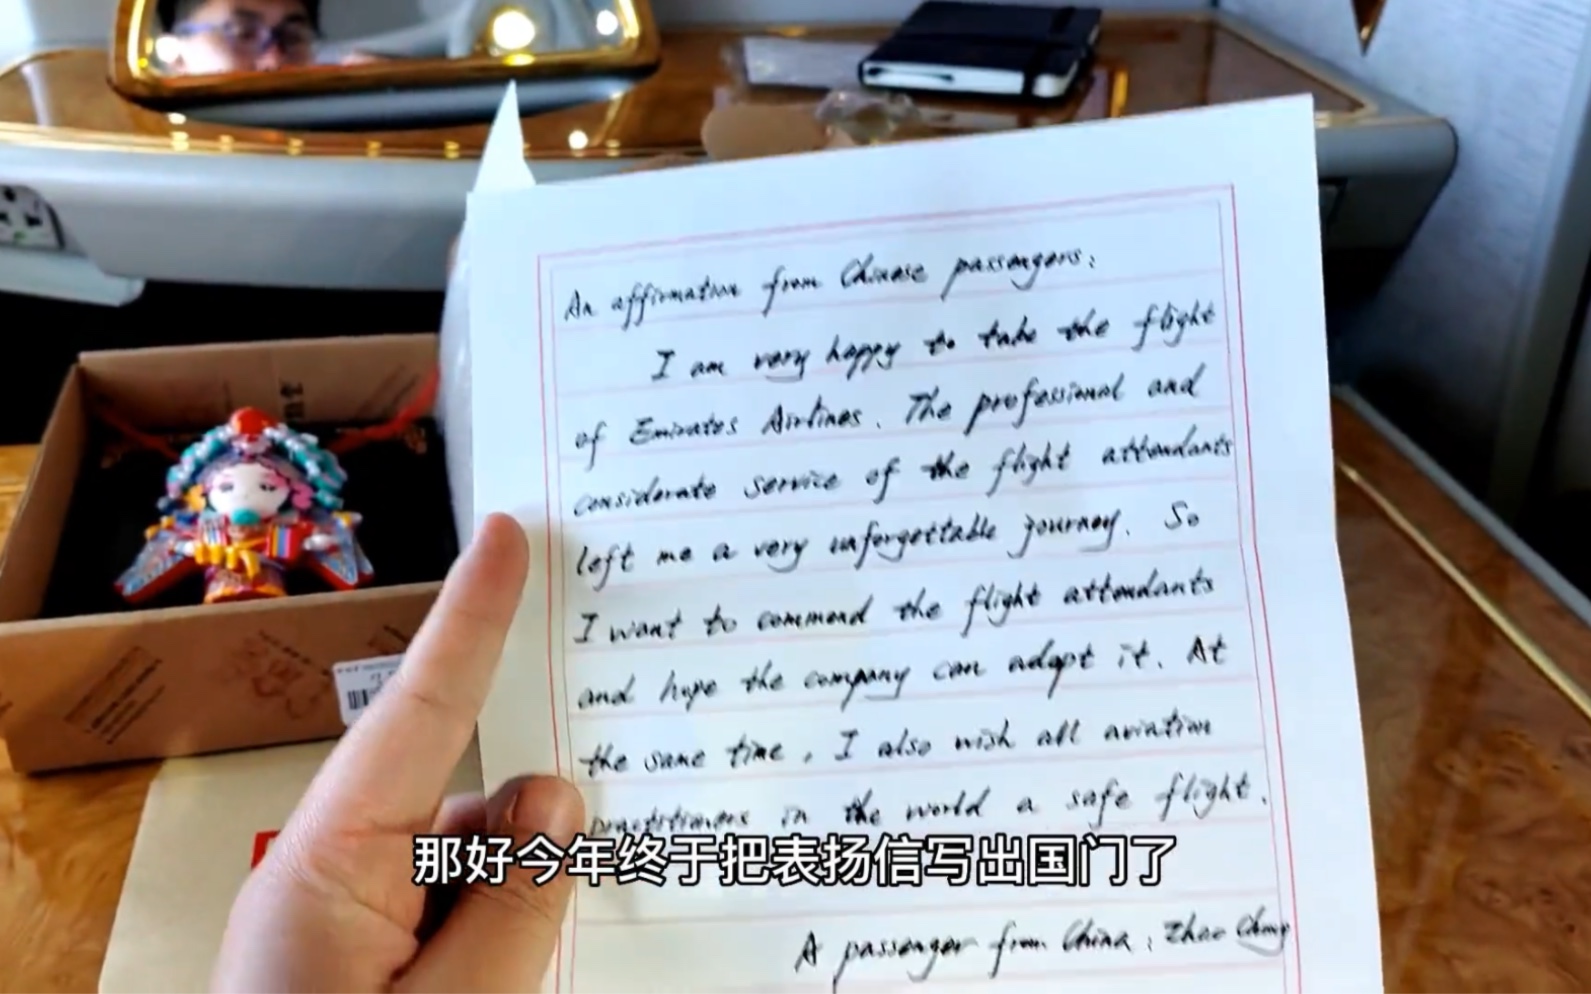 An affirmation from Chinese passengers:
I am very happy to take the flight
of Emirates Airlines. The professional and
considerate service of the flight attendants
left me a very unforgettable journey. So
I want to commend the flight attendants
and hope the company can adopt it. At
the same time, I also wish all aviation
practitioners in the world a safe flight.
那好今年终于把表扬信写出国门了
A passenger from China: